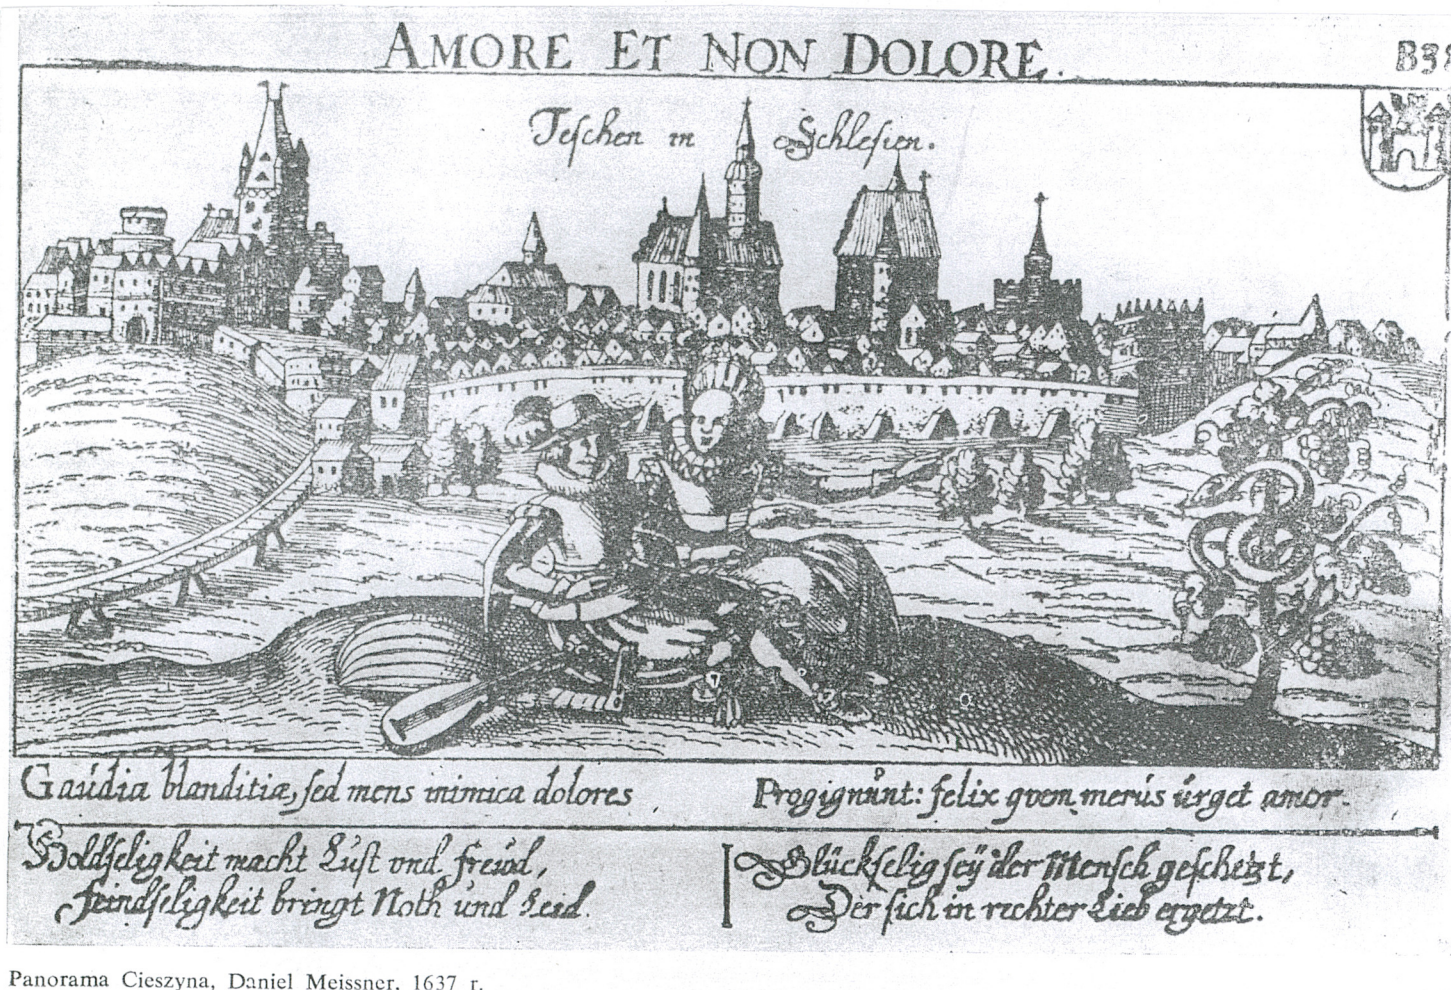 AMORE ET NON DOLORE.
B3
Teschen in Schlesien.
Gaudia blanditiæ, sed mens inimica dolores
Progignunt: felix quem merus urget amor.
Holdseligkeit macht Lust vnd freud,
Feindseligkeit bringt Noth und Leid.
Glückselig seÿ der Mensch geschetzt,
Der sich in rechter Lieb ergetzt.
Panorama Cieszyna, Daniel Meissner. 1637 r.